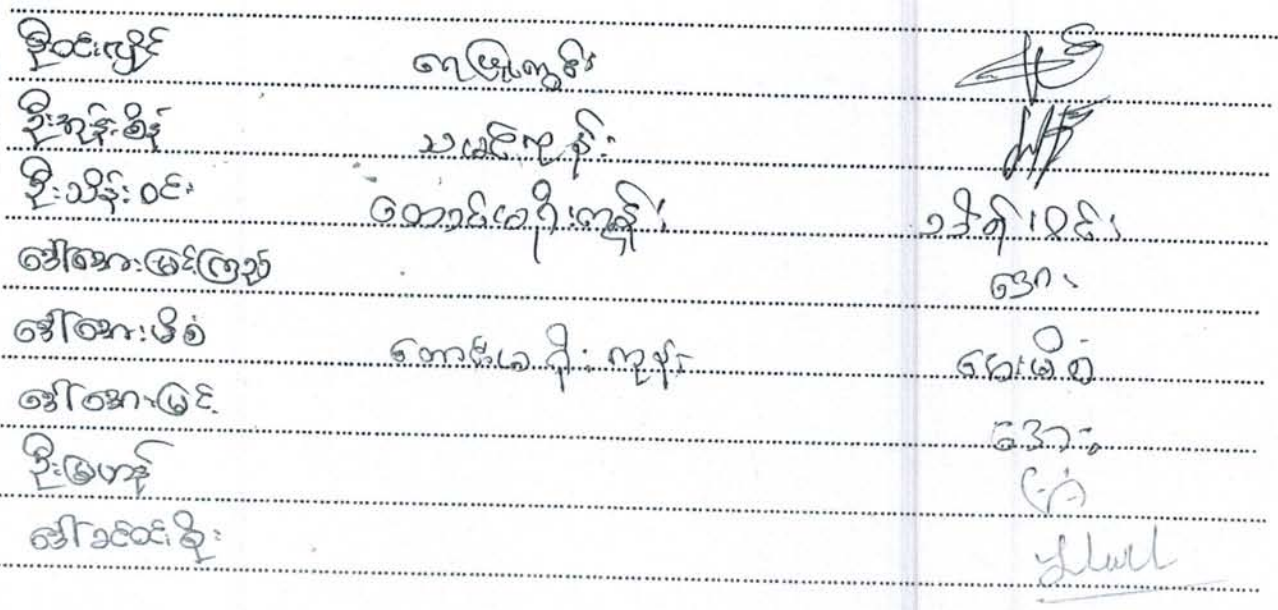 ဦးဝင်းလှိုင် ရေဖြူကွင်း
ဦးထွန်းစိန် သမင်ကုန်း
ဦးသိန်းဝင်း တောင်ယရိုးကုန်း သိန်းဝင်း
ဒေါ်အေးမြင့်ကြည် အေး
ဒေါ်အေးမိစံ တောင်ယရိုးကုန်း အေးမိစံ
ဒေါ်အေးမြင့် အေး
ဦးမြဟန်
ဒေါ်ခင်ဝင်းစိုး